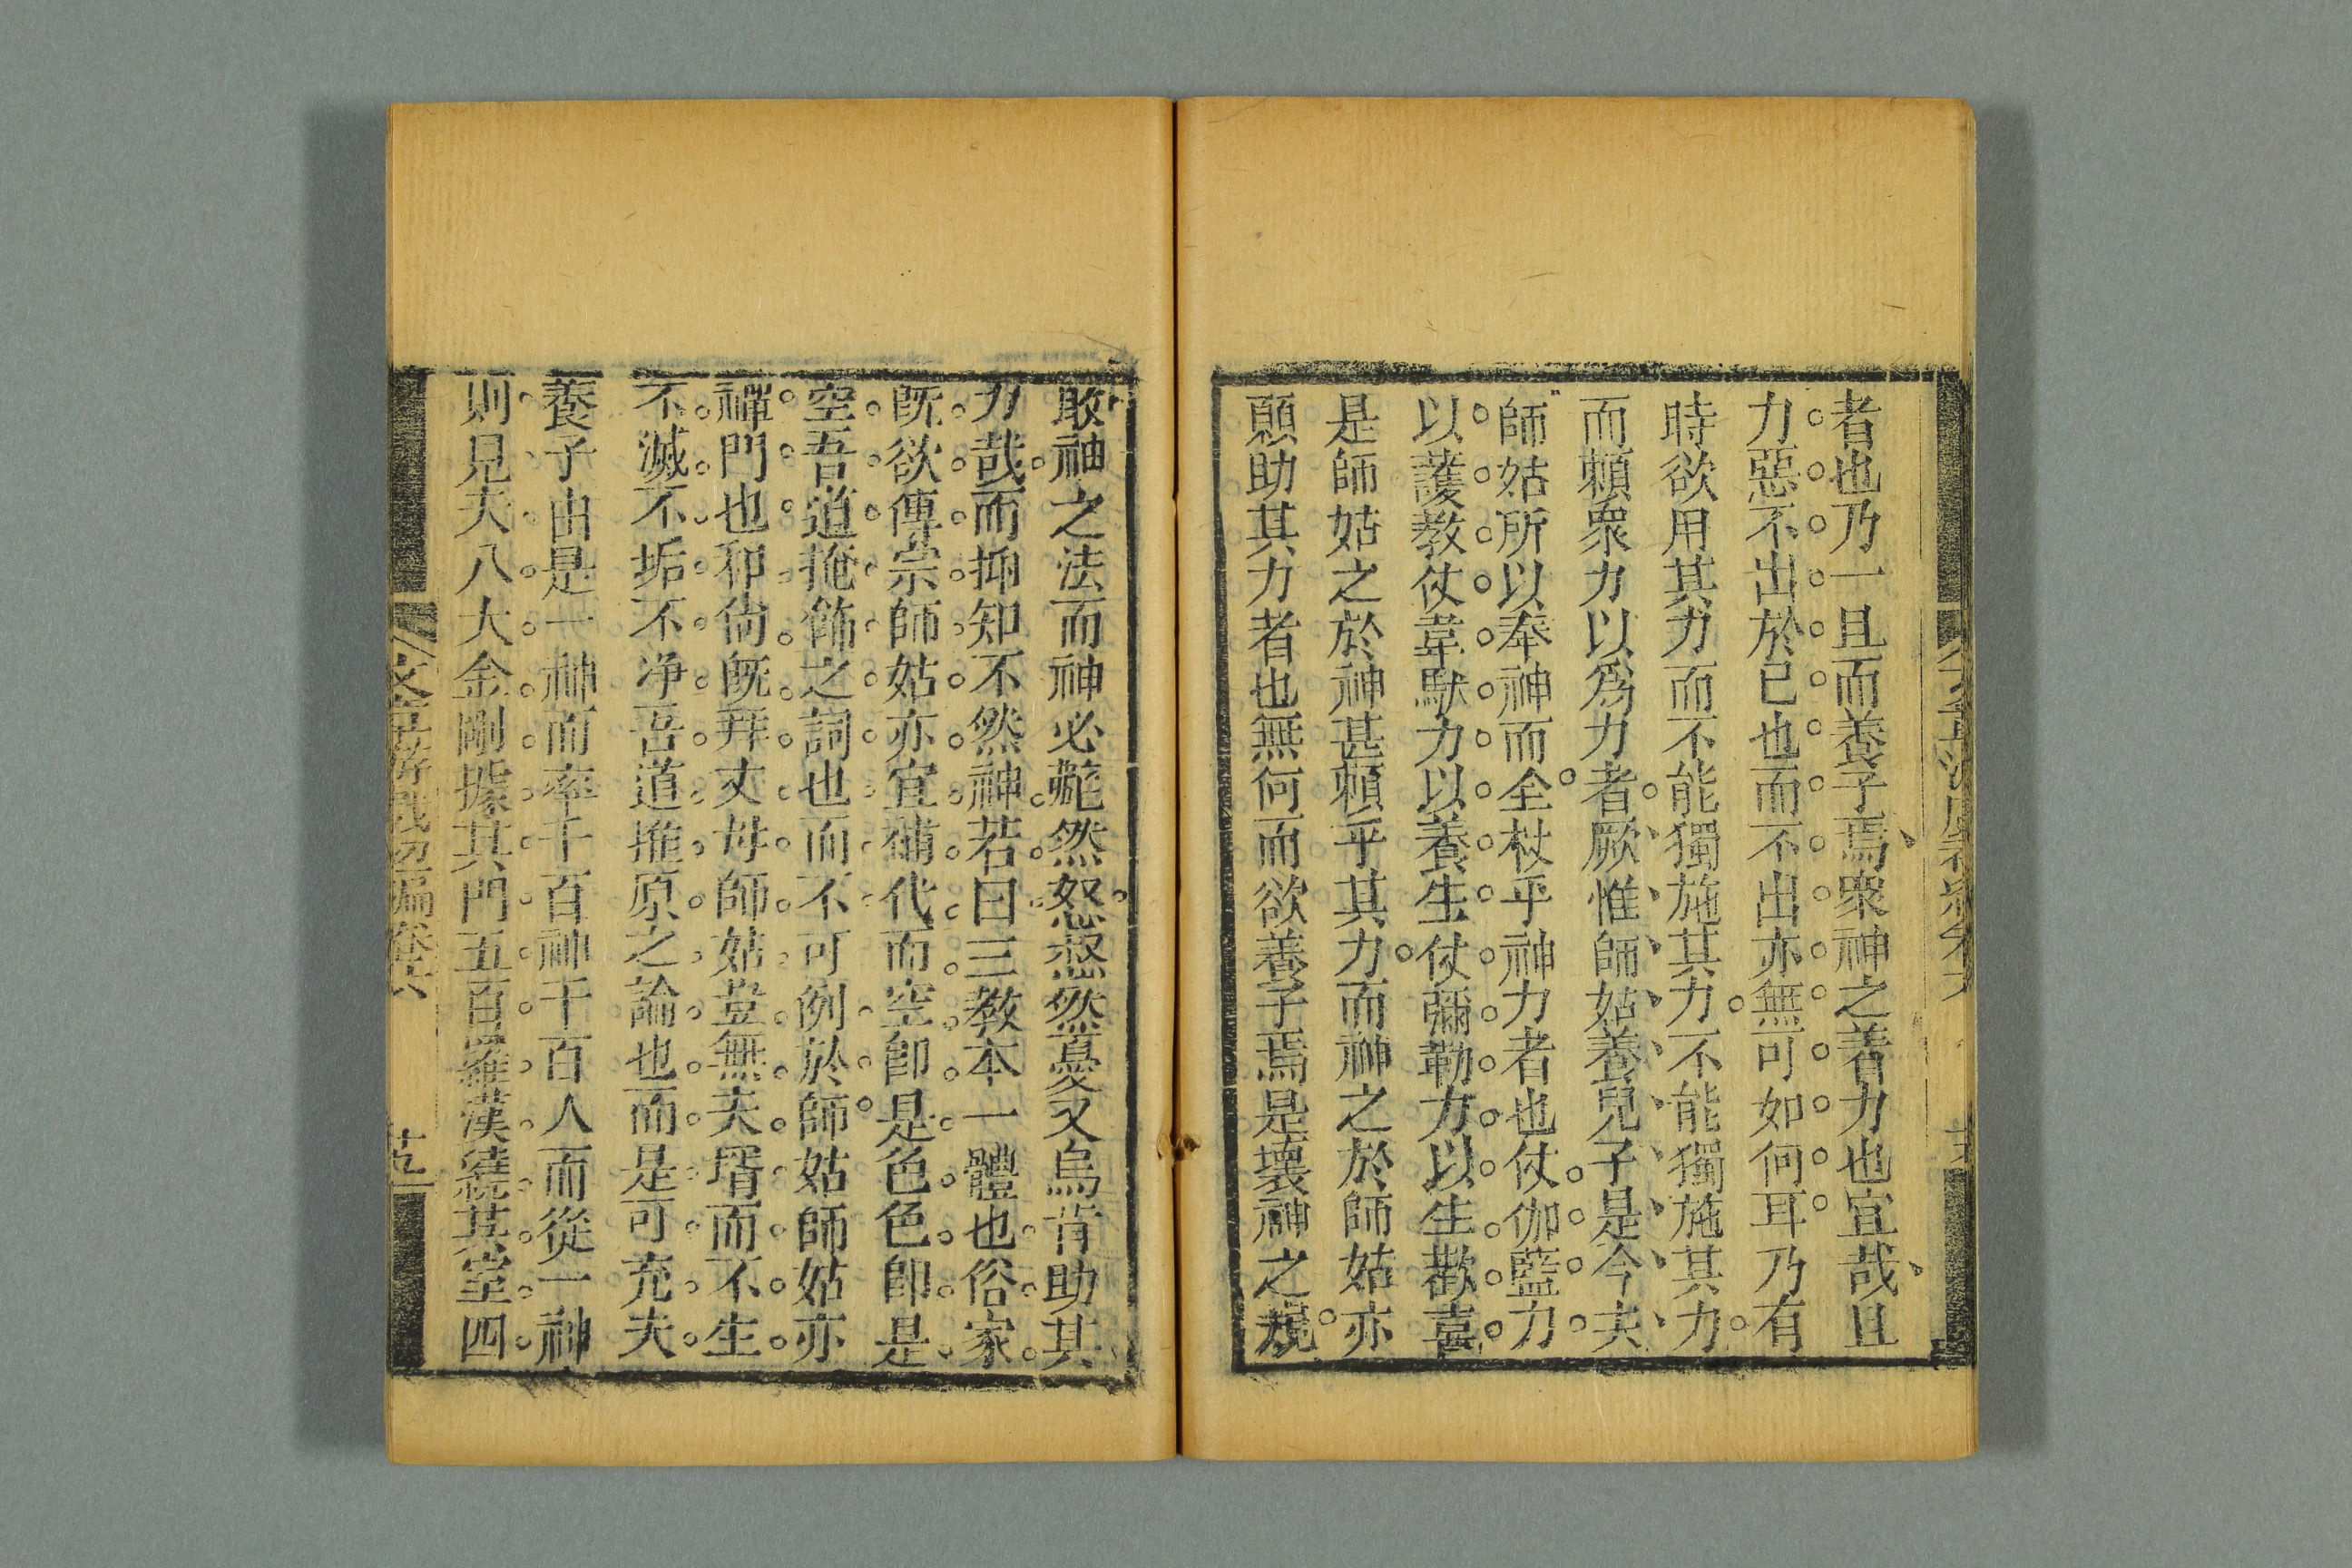 者也乃一旦而養子焉衆神之著力也宜哉且
力惡不出於已也而不出亦無可如何耳乃有
時欲用其力而不能獨施其力不能獨施其力
而頼衆力以爲力者厥惟師姑養兒子是今夫
師姑所以奉神而全杖乎神力者也仗伽藍力
以護教仗韋馱力以養生仗彌勒力以生歡喜
是師姑之於神甚頼乎其力而神之於師姑亦
願助其力者也無何而欲養子焉是壞神之規
敗神之法而神必薨然怒愀然憂又烏肯助其
力哉而抑知不然神若曰三教本一體也俗家
旣欲傳宗師姑亦宜補代而空卽是色色卽是
空吾道掩飾之詞也而不可例於師姑師姑亦
禪門也和尙旣拜丈母師姑豈無夫壻而不生
不滅不垢不净吾道推原之論也而是可充夫
養子由是一神而率千百神千百人而從一神
則見夫八大金剛據其門五百羅漢繞其堂四
卷六